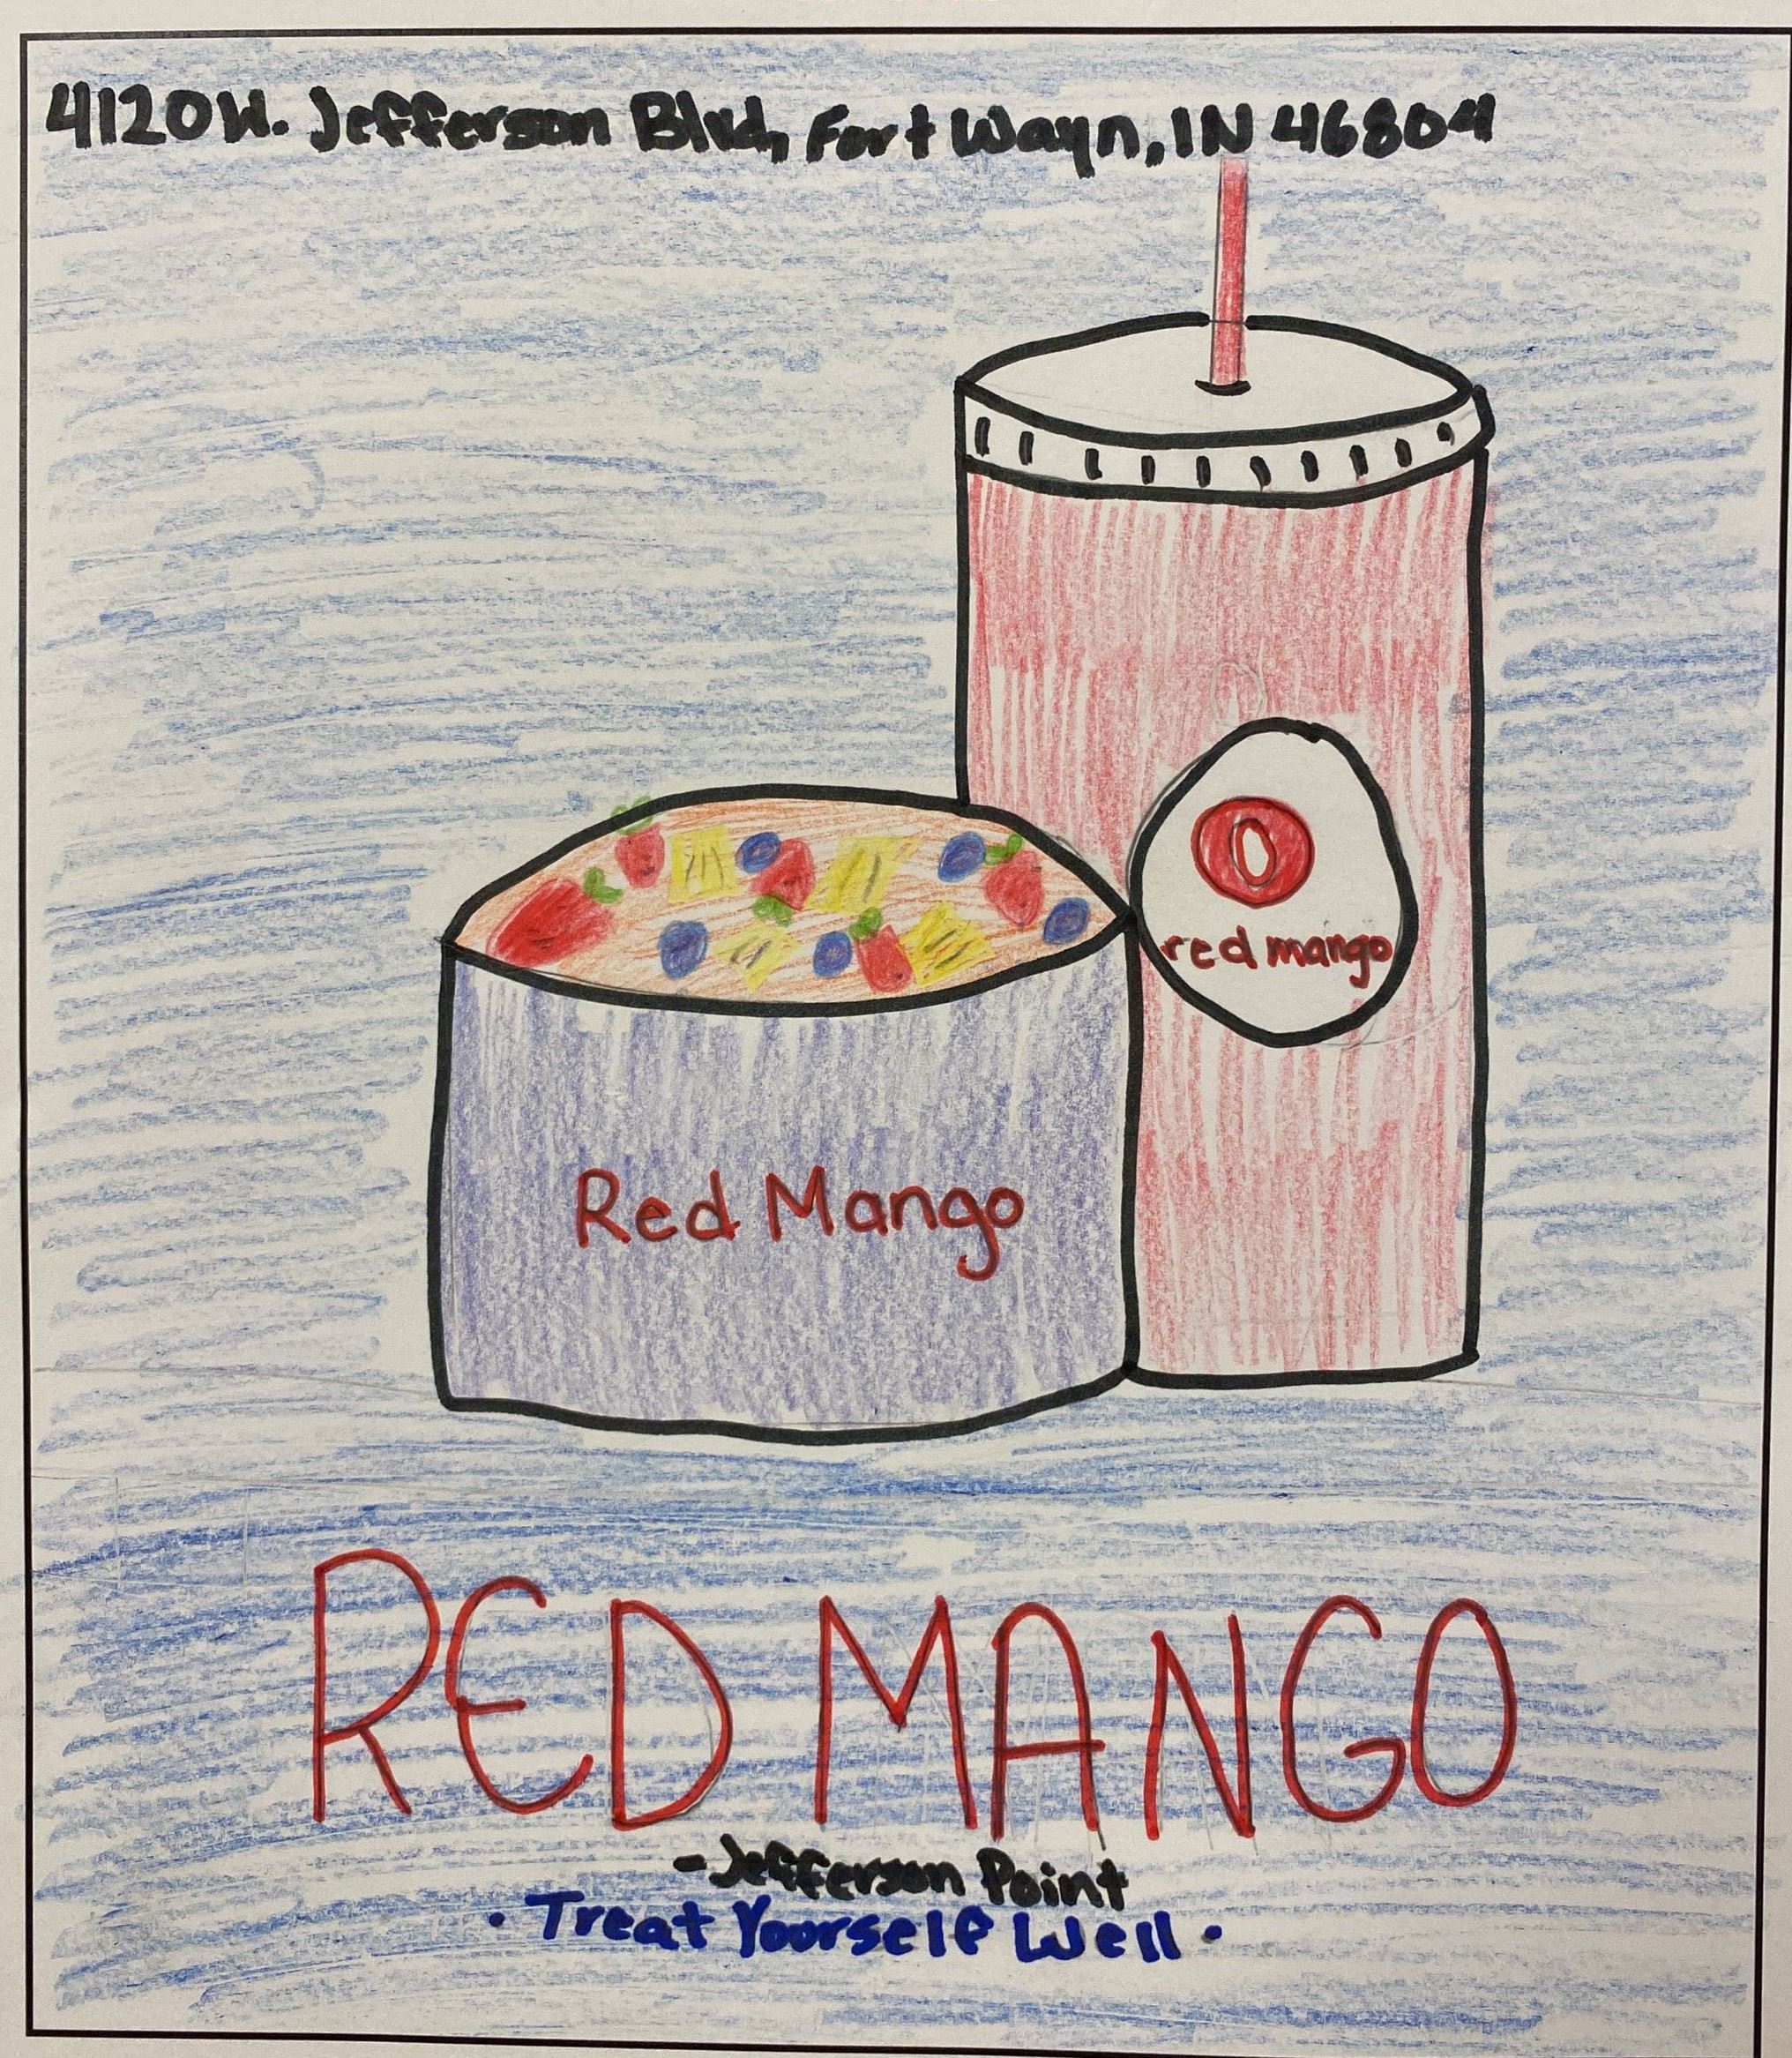 4120 W. Jefferson Blvd, Fort Wayn, IN 46804
O
red mango
Red Mango
RED MANGO
- Jefferson Point
· Treat Yourself Well ·